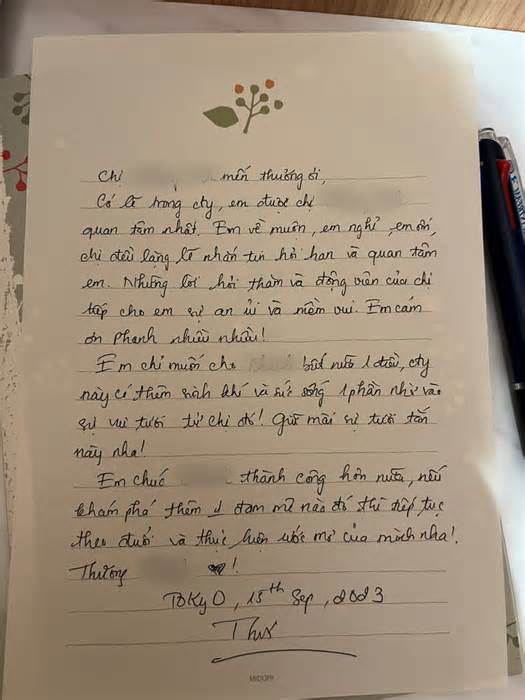 Chị mến thương ơi,
Có lẽ trong cty, em được chị
quan tâm nhất. Em về muộn, em nghỉ, em ốm,
chị đều lặng lẽ nhắn tin hỏi han và quan tâm
em. Những lời hỏi thăm và động viên của chị
tiếp cho em sự an ủi và niềm vui. Em cám
ơn nhiều nhiều!
Em chỉ muốn cho biết nữa 1 điều, cty
này có thêm sinh khí và sức sống 1 phần nhờ vào
sự vui tươi từ chị đó! Giữ mãi sự tươi tắn
này nha!
Em chúc thành công hơn nữa, nếu
khám phá thêm đam mê nào đó thì tiếp tục
theo đuổi và thực hiện ước mơ của mình nha!
Thương !
TOKYO, 15th Sep, 2023
MIDORI